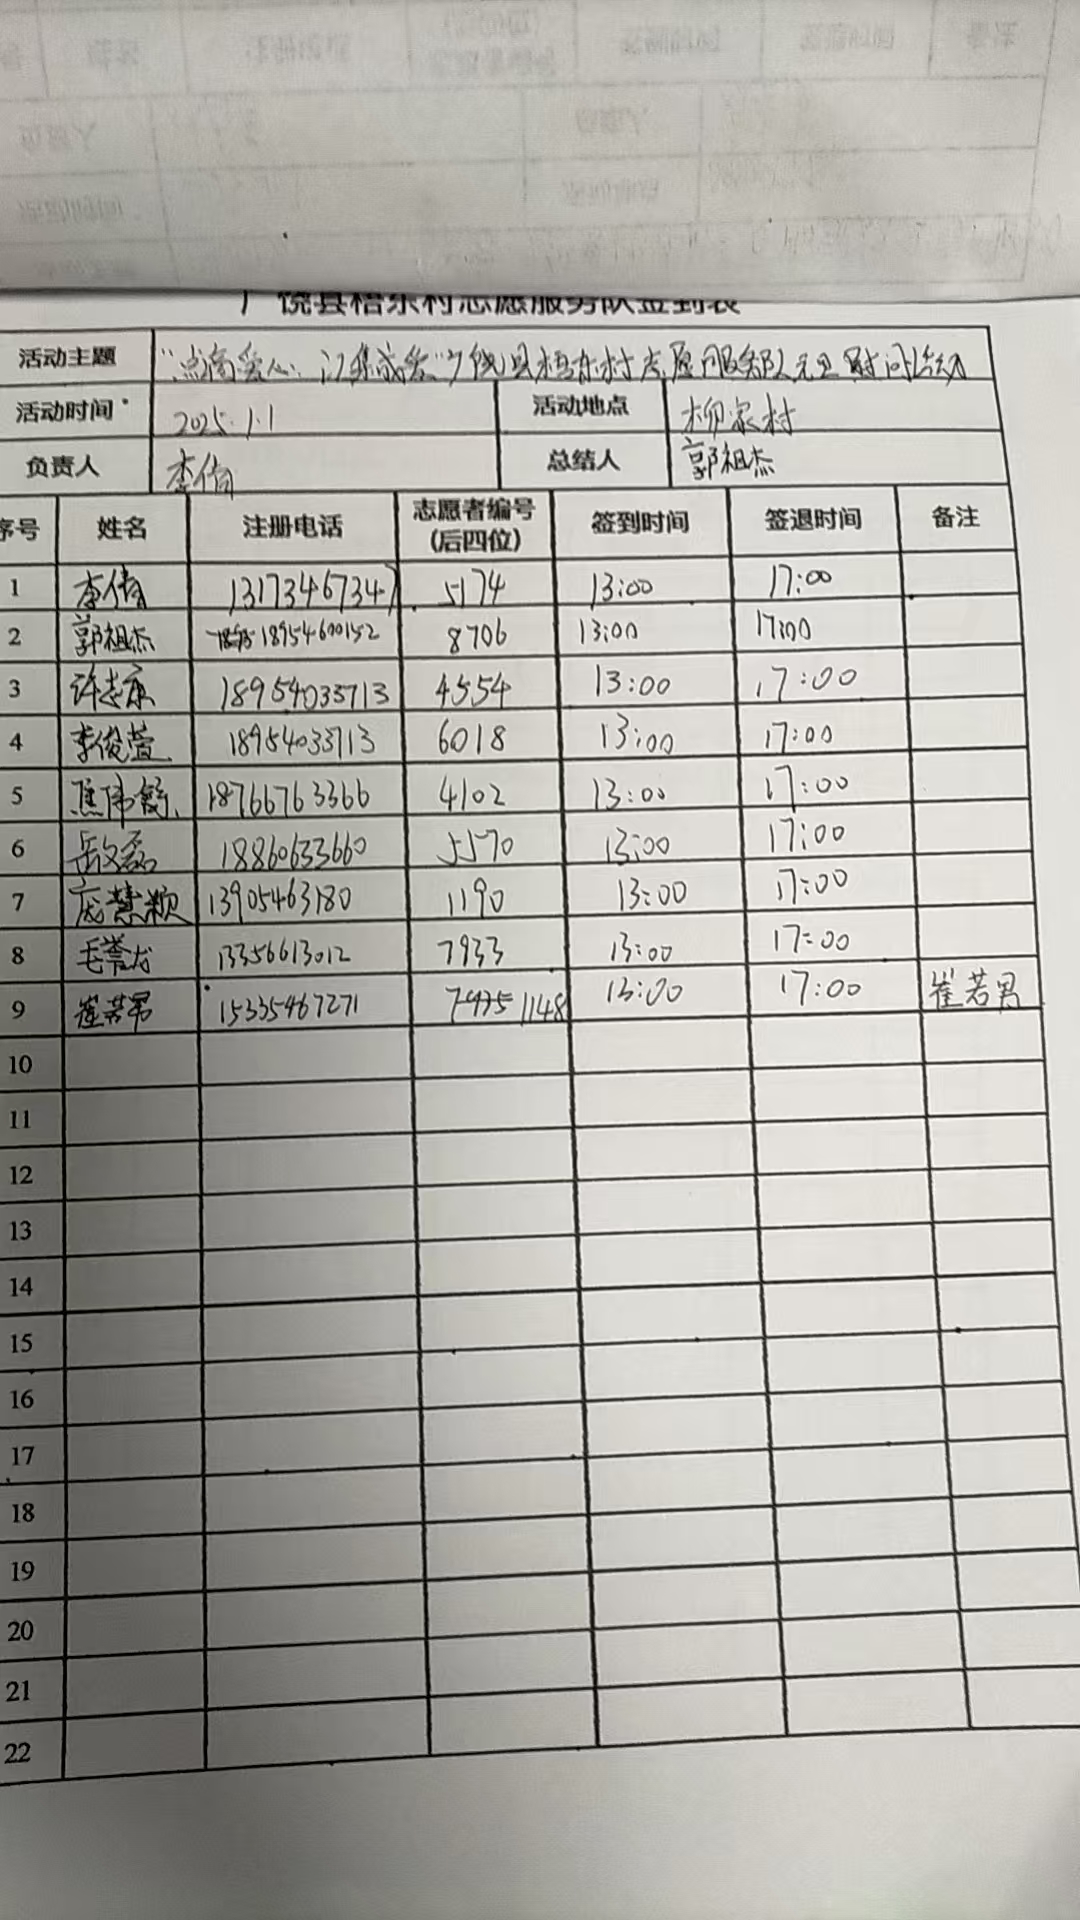 广饶县梧东村志愿服务队签到表
活动主题 “点滴爱心，汇集成爱”广饶县梧东村志愿服务队元旦慰问活动
活动时间 2025.1.1 活动地点 柳家村
负责人 李倩 总结人 郭祖杰
序号 姓名 注册电话 志愿者编号(后四位) 签到时间 签退时间 备注
1 李倩 13173467347 5174 13:00 17:00
2 郭祖杰 18954600152 8706 13:00 17:00
3 许志康 18954033713 4554 13:00 17:00
4 李俊萱 18954033713 6018 13:00 17:00
5 焦伟 18766763366 4102 13:00 17:00
6 岳文磊 18860633660 5570 13:00 17:00
7 庞慧颖 13905463180 1190 13:00 17:00
8 毛誉龙 13356613012 7933 13:00 17:00
9 崔若男 15335467271 7935 1148 13:00 17:00 崔若男
10
11
12
13
14
15
16
17
18
19
20
21
22